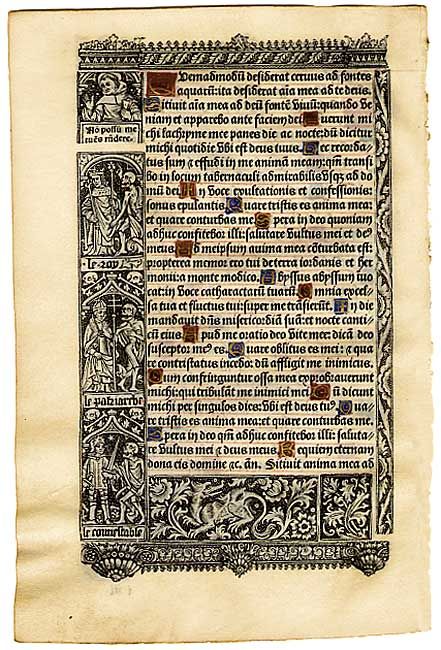 Quemadmodū desiderat ceruus ad fontes
aquarū: ita desiderat aīa mea ad te deus.
Sitiuit aīa mea ad deū fontē viuū: quando ve
niam et apparebo ante faciem dei Fuerunt mi
chi lachryme mee panes die ac nocte: dū dicitur
michi quotidie Vbi est deus tuus Hec recorda
tus sum & effudi in me animam meam: qm̄ transi
bo in locum tabernaculi admirabilis Vsqꝫ ad do
mū dei In voce exultationis et confessionis:
sonus epulantis Quare tristis es anima mea
et quare conturbas me Spera in deo quoniam
adhuc confitebor illi: salutare Vultus mei et deꝰ
meus Ad meipsum anima mea cōturbata est:
propterea memor ero tui de terra iordanis et her
monii: a monte modico. Abyssus abyssum iuo
cat: in voce catharactarū tuarū Omnia excel
sa tua et fluctus tui: super me trāsierūt In die
mandauit dn̄s misericordiā suā: et nocte canti
cū eius Apud me oratio deo vite mee: dicā deo
susceptor meꝰ es Quare oblitus es mei: & qua
re contristatus incedo: dū affligit me inimicus.
Dum confringuntur ossa mea exprobrauerunt
michi: qui tribulāt me inimici mei Dum dicunt
michi per singulos dies: vbi est deus tuꝰ Qua
re tristis es anima mea: et quare conturbas me.
Spera in deo qm̄ adhuc confitebor illi: saluta
re vultus mei & deus meus Requiem eternam
dona eis domine &c. an. Sitiuit anima mea ad
Nō possū me
tuēs rn̄dere.
le roy
le patriarche
le connestable